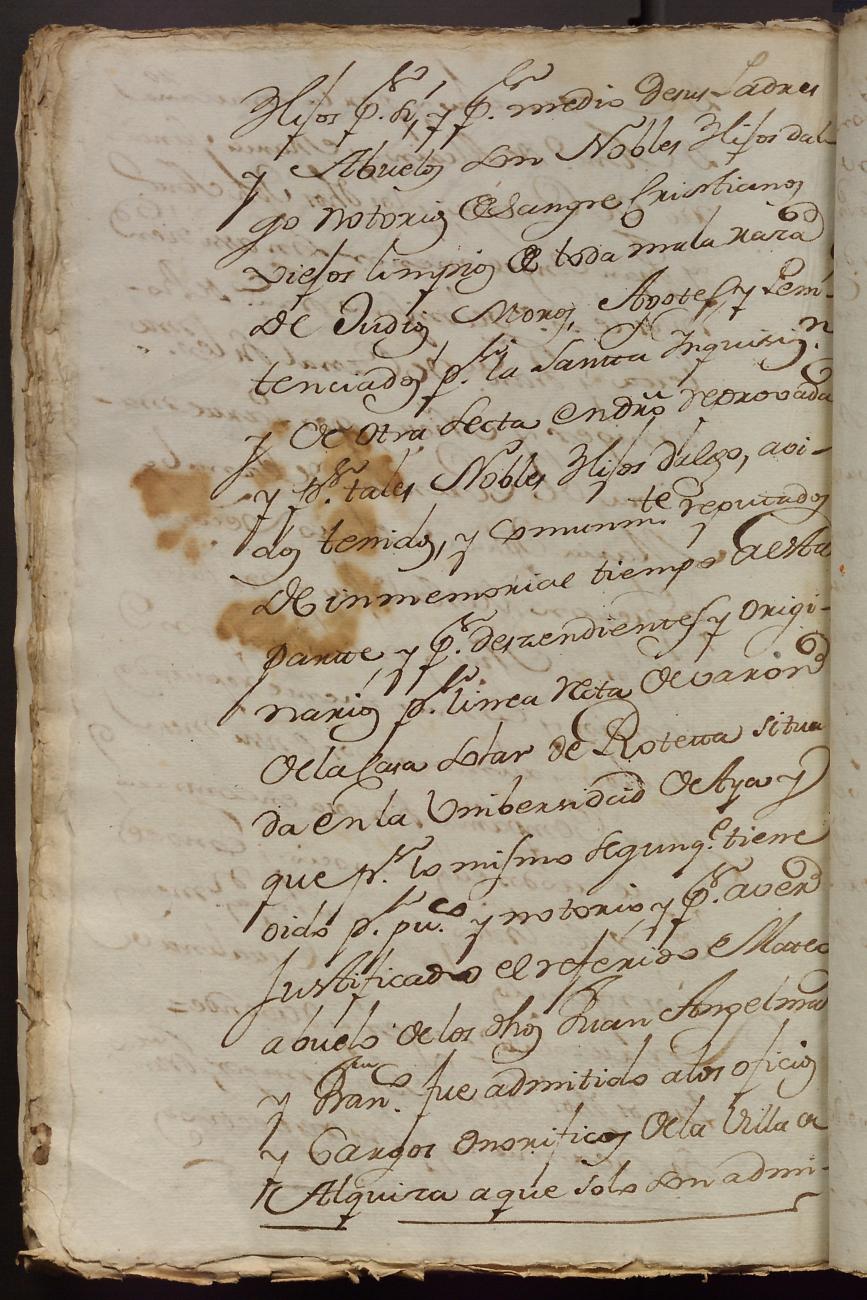 Hijos p.r si, y p.r medio desus Padres
y Abuelos son Nobles Hijos dal
go notorios de sangre Cristianos
viejos limpios de toda mala raza
de Judios Moros, Agotes, y Peni-
tenciados p.r la Santta Inquisi.n
y de otra secta en dro reprovada
y p.r tales Nobles Hijos dalgo, avi-
dos tenidos, y comunm.te reputados
de inmemorial tiempo aesta
partte, y p.r deszendientes y origi-
narios p.r linea recta de varon
de la Casa solar de Rotetta situa
da en la Unibersidad de Aya y
que p.r lo mismo segun q.e tiene
oido p.r pu.co y notorio, y p.r aver
justificado el referido Mateo
abuelo de los dhos Juan Angel ma
y Fran.co fue admitido a los oficios
y Cargos onorificos de la Villa de
Alquiza aque solo son admi-